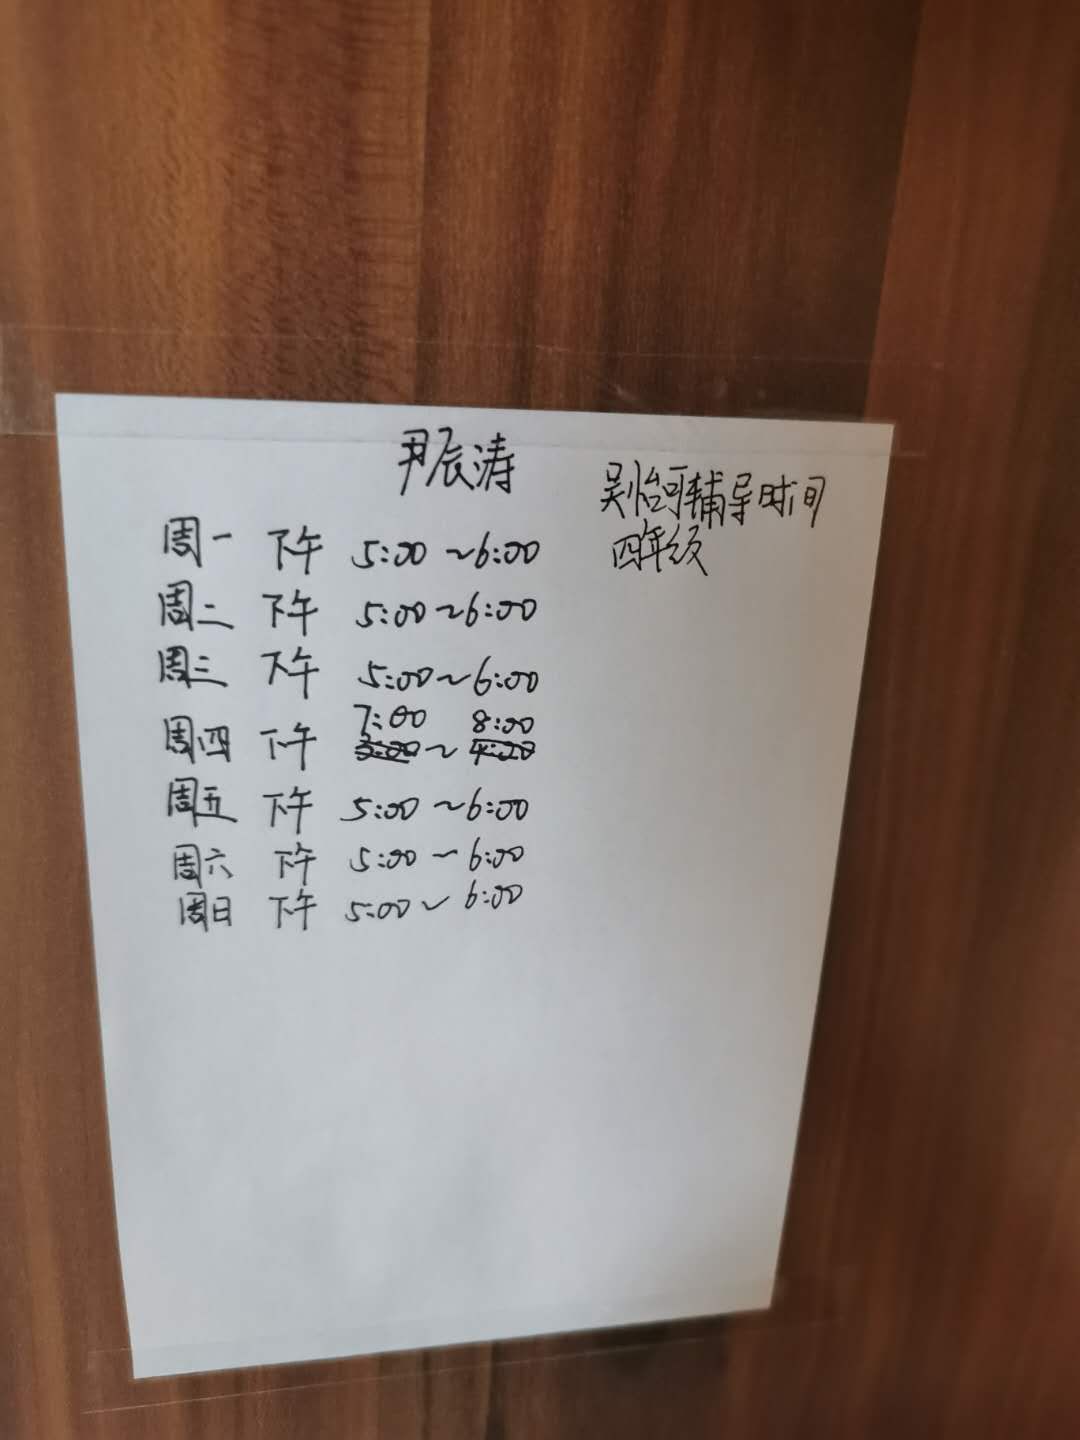 尹辰涛
吴怡可辅导时间
四年级
周一 下午 5:00~6:00
周二 下午 5:00~6:00
周三 下午 5:00~6:00
7:00 8:00
周四 下午 3:00~4:00
周五 下午 5:00~6:00
周六 下午 5:00~6:00
周日 下午 5:00~6:00